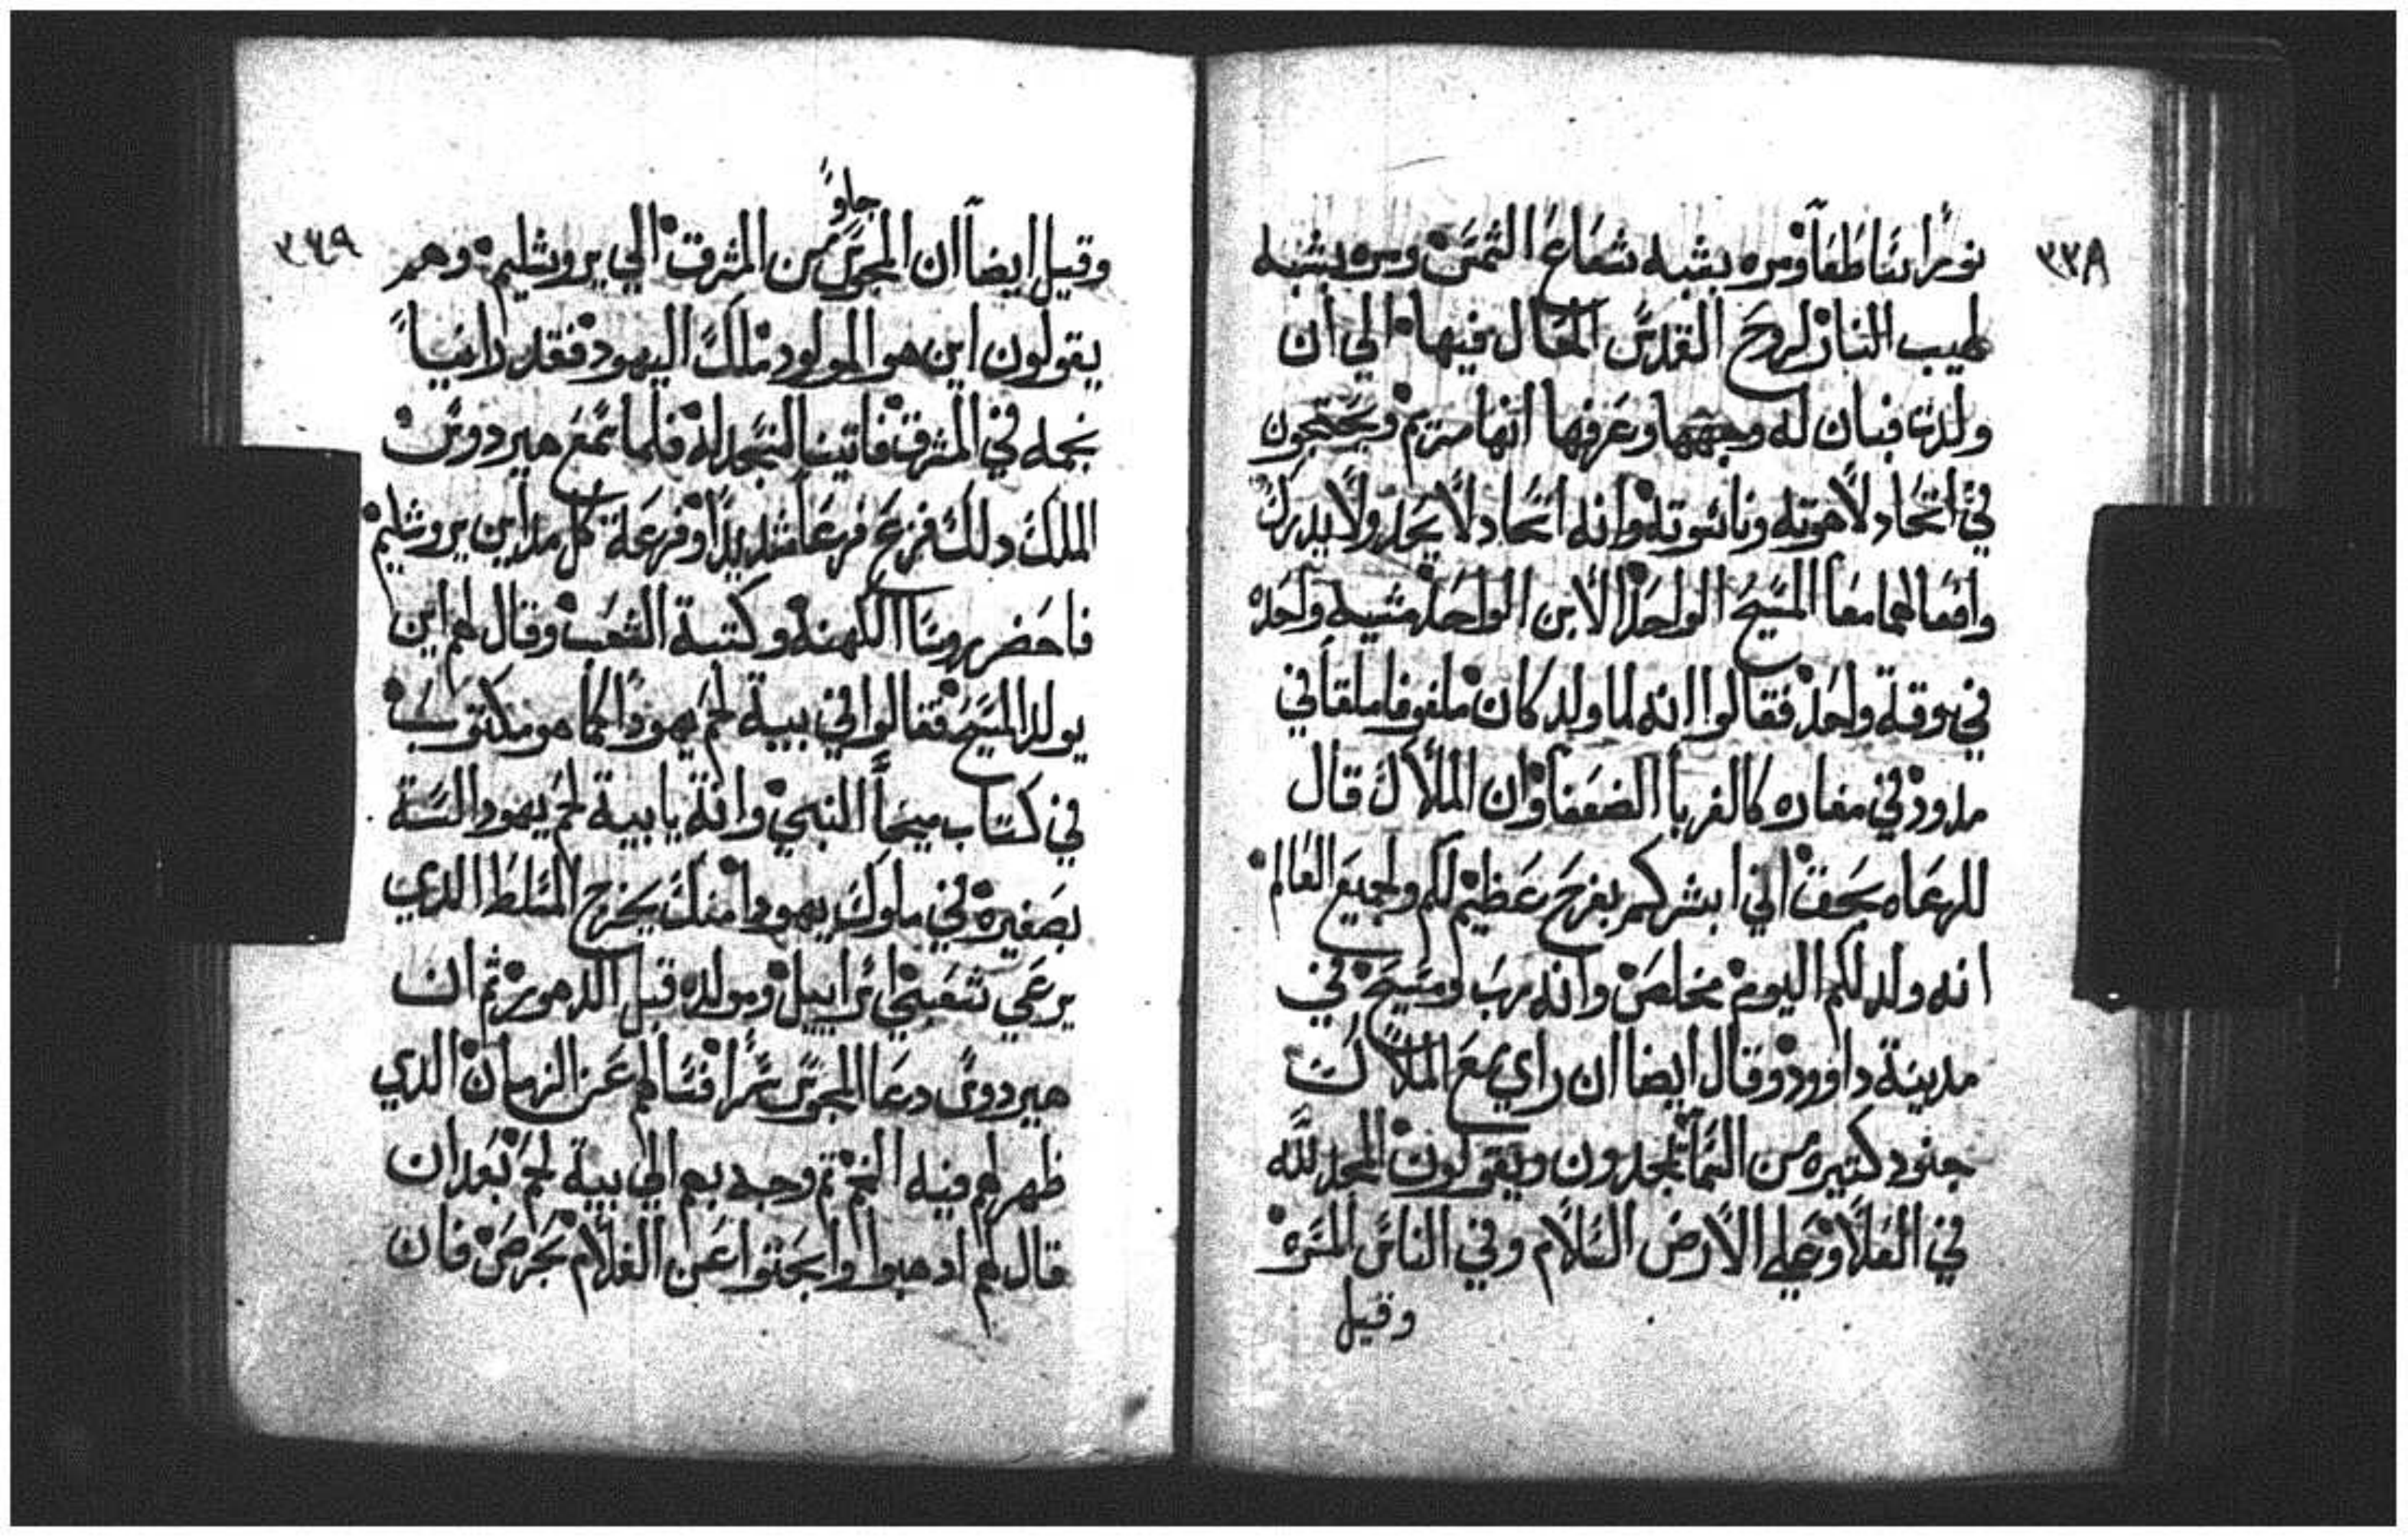 ٣٣٨
نورًا ساطعًا ومره يشبه شعاع الشمس ومره يشبه
لهيب النار لروح القدس الحال فيها الي ان
ولدت فبان له وجهها وعرفها انها مريم ويحتجون
في اتحاد لاهوته وناسوته وانه اتحاد لا يحد ولا يدرك
وافعالهما معا المسيح الواحد الابن الواحد مشيه واحده
في وقة واحد فقالوا انه لما ولد كان ملفوفا ملقا في
مدود في مغاره كالغربا الضعفا وان الملاك قال
للرعاه بحق اني ابشركم بفرح عظيم لكم ولجميع العالم
انه ولد لكم اليوم مخلص وانه رب ومسيح في
مدينة داوود وقال ايضا ان راي مع الملاك
جنود كتيره من السما يمجدون ويقولون المجد لله
في العلا وعلي الارض السلام وفي الناس المسره
وقيل
٣٣٩
جاوً
وقيل ايضا ان المجوس من المشرق الي يروشليم وهم
يقولون اين هو المولود ملك اليهود فقد راينا
نجمه في المشرق فاتينا لنسجد له فلما سمع هيردوس
الملك دلك فزع فزعا شديدًا وفزعة كل مداين يروشليم
فاحضر روسا الكهنه وكتبة الشعب وقال لهم اين
يولد المسيح فقالوا في بيية لحم يهودا كما هو مكتوب
في كتاب ميخا النبي وانة يا بيية لحم يهودا لسة
بصغيره في ملوك يهودا منك يخرج المسلط الدي
يرعي شعبي اسراييل ومولده قبل الدهور ثم ان
هيردوس دعا المجوس سرًا فسالهم عن الزمان الدي
ظهر لهم فيه النجم ثم وجه بهم الي بيية لحم بعد ان
قال لهم ادهبوا وابحتوا عن الغلام بحرص فان